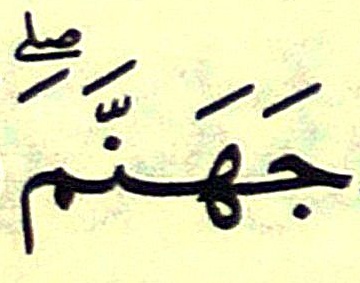 جَهَنَّمَۖ